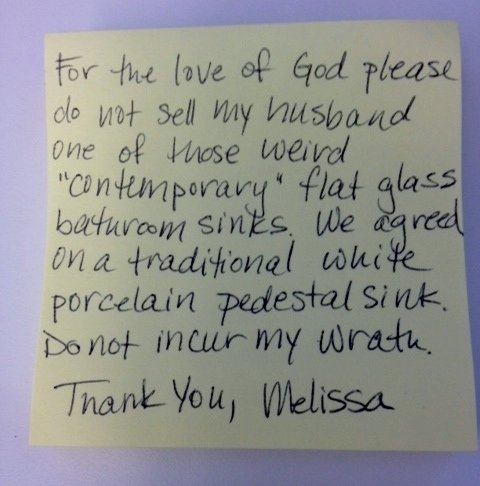 For the love of God please
do not sell my husband
one of those weird
"contemporary" flat glass
bathroom sinks. We agreed
on a traditional white
porcelain pedestal sink.
Do not incur my wrath.
Thank You, Melissa